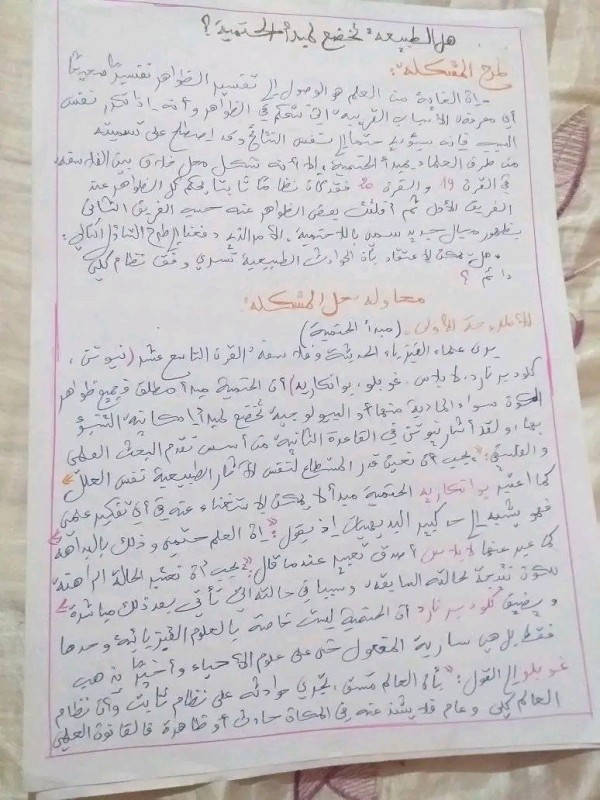 هل الطبيعة تخضع لمبدأ الحتمية؟
طرح المشكلة:
- إن الغاية من العلم هو الوصول إلى تفسير الظواهر تفسيرا صحيحا
أي معرفة الأسباب القريبة التي تتحكم في الظواهر وأنه إذا تكرر نفس
السبب فانه سيؤدي حتما إلى نفس النتائج وقد اصطلح على تسميته
من طرف العلماء بمبدأ الحتمية، إلا أنه شكل محل خلاف بين الفلاسفة
في القرن 19 والقرن 20 فقد كان نظاما ثابتا يحكم كل الظواهر عند
الفريق الأول ثم أفلتت بعض الظواهر عنه حسب الفريق الثاني
بظهور مجال جديد سمي باللاحتمية. الأمر الذي دفعنا إلى طرح التساؤل التالي:
• هل يمكن الاعتقاد بأن الحوادث الطبيعية تسري وفق نظام كلي
دائم؟
محاولة حل المشكلة:
الأطروحة الأولى: (مبدأ الحتمية)
يرى علماء الفيزياء الحديثة وفلاسفة القرن التاسع عشر (نيوتن،
كلود برنارد، لابلاس، غوبلو، بوانكاريه) أن الحتمية مبدأ مطلق فجميع ظواهر
الكون سواء المادية منها أو البيولوجية تخضع لمبدأ إمكانية التنبؤ
بها، ولقد أشار نيوتن في القاعدة الثانية من أسس تقدم البحث العلمي
والفلسفي: "يجب أن نعين قدر المستطاع لنفس الآثار الطبيعية نفس العلل"
كما اعتبر بوانكاريه الحتمية مبدأ لا يمكن الاستغناء عنه في أي تفكير علمي
فهو يشبه إلى حد كبير البديهيات إذ يقول: "إن العلم حتمي وذلك بالبداهة"
كما عبر عنها لابلاس أصدق تعبير عندما قال: "يجب أن نعتبر الحالة الراهنة
للكون نتيجة لحالته السابقة، وسببا في حالته التي تأتي بعد ذلك مباشرة"
ويضيف كلود برنارد أن الحتمية ليست خاصة بالعلوم الفيزيائية وحدها
فقط بل هي سارية المفعول حتى على علوم الأحياء وأخيرا يذهب
غوبلو إلى القول: "بأن العالم متسق، تجري حوادثه على نظام ثابت وأن نظام
العالم كلي وعام فلا يشذ عنه في المكان حادث أو ظاهرة فالقانون العلمي